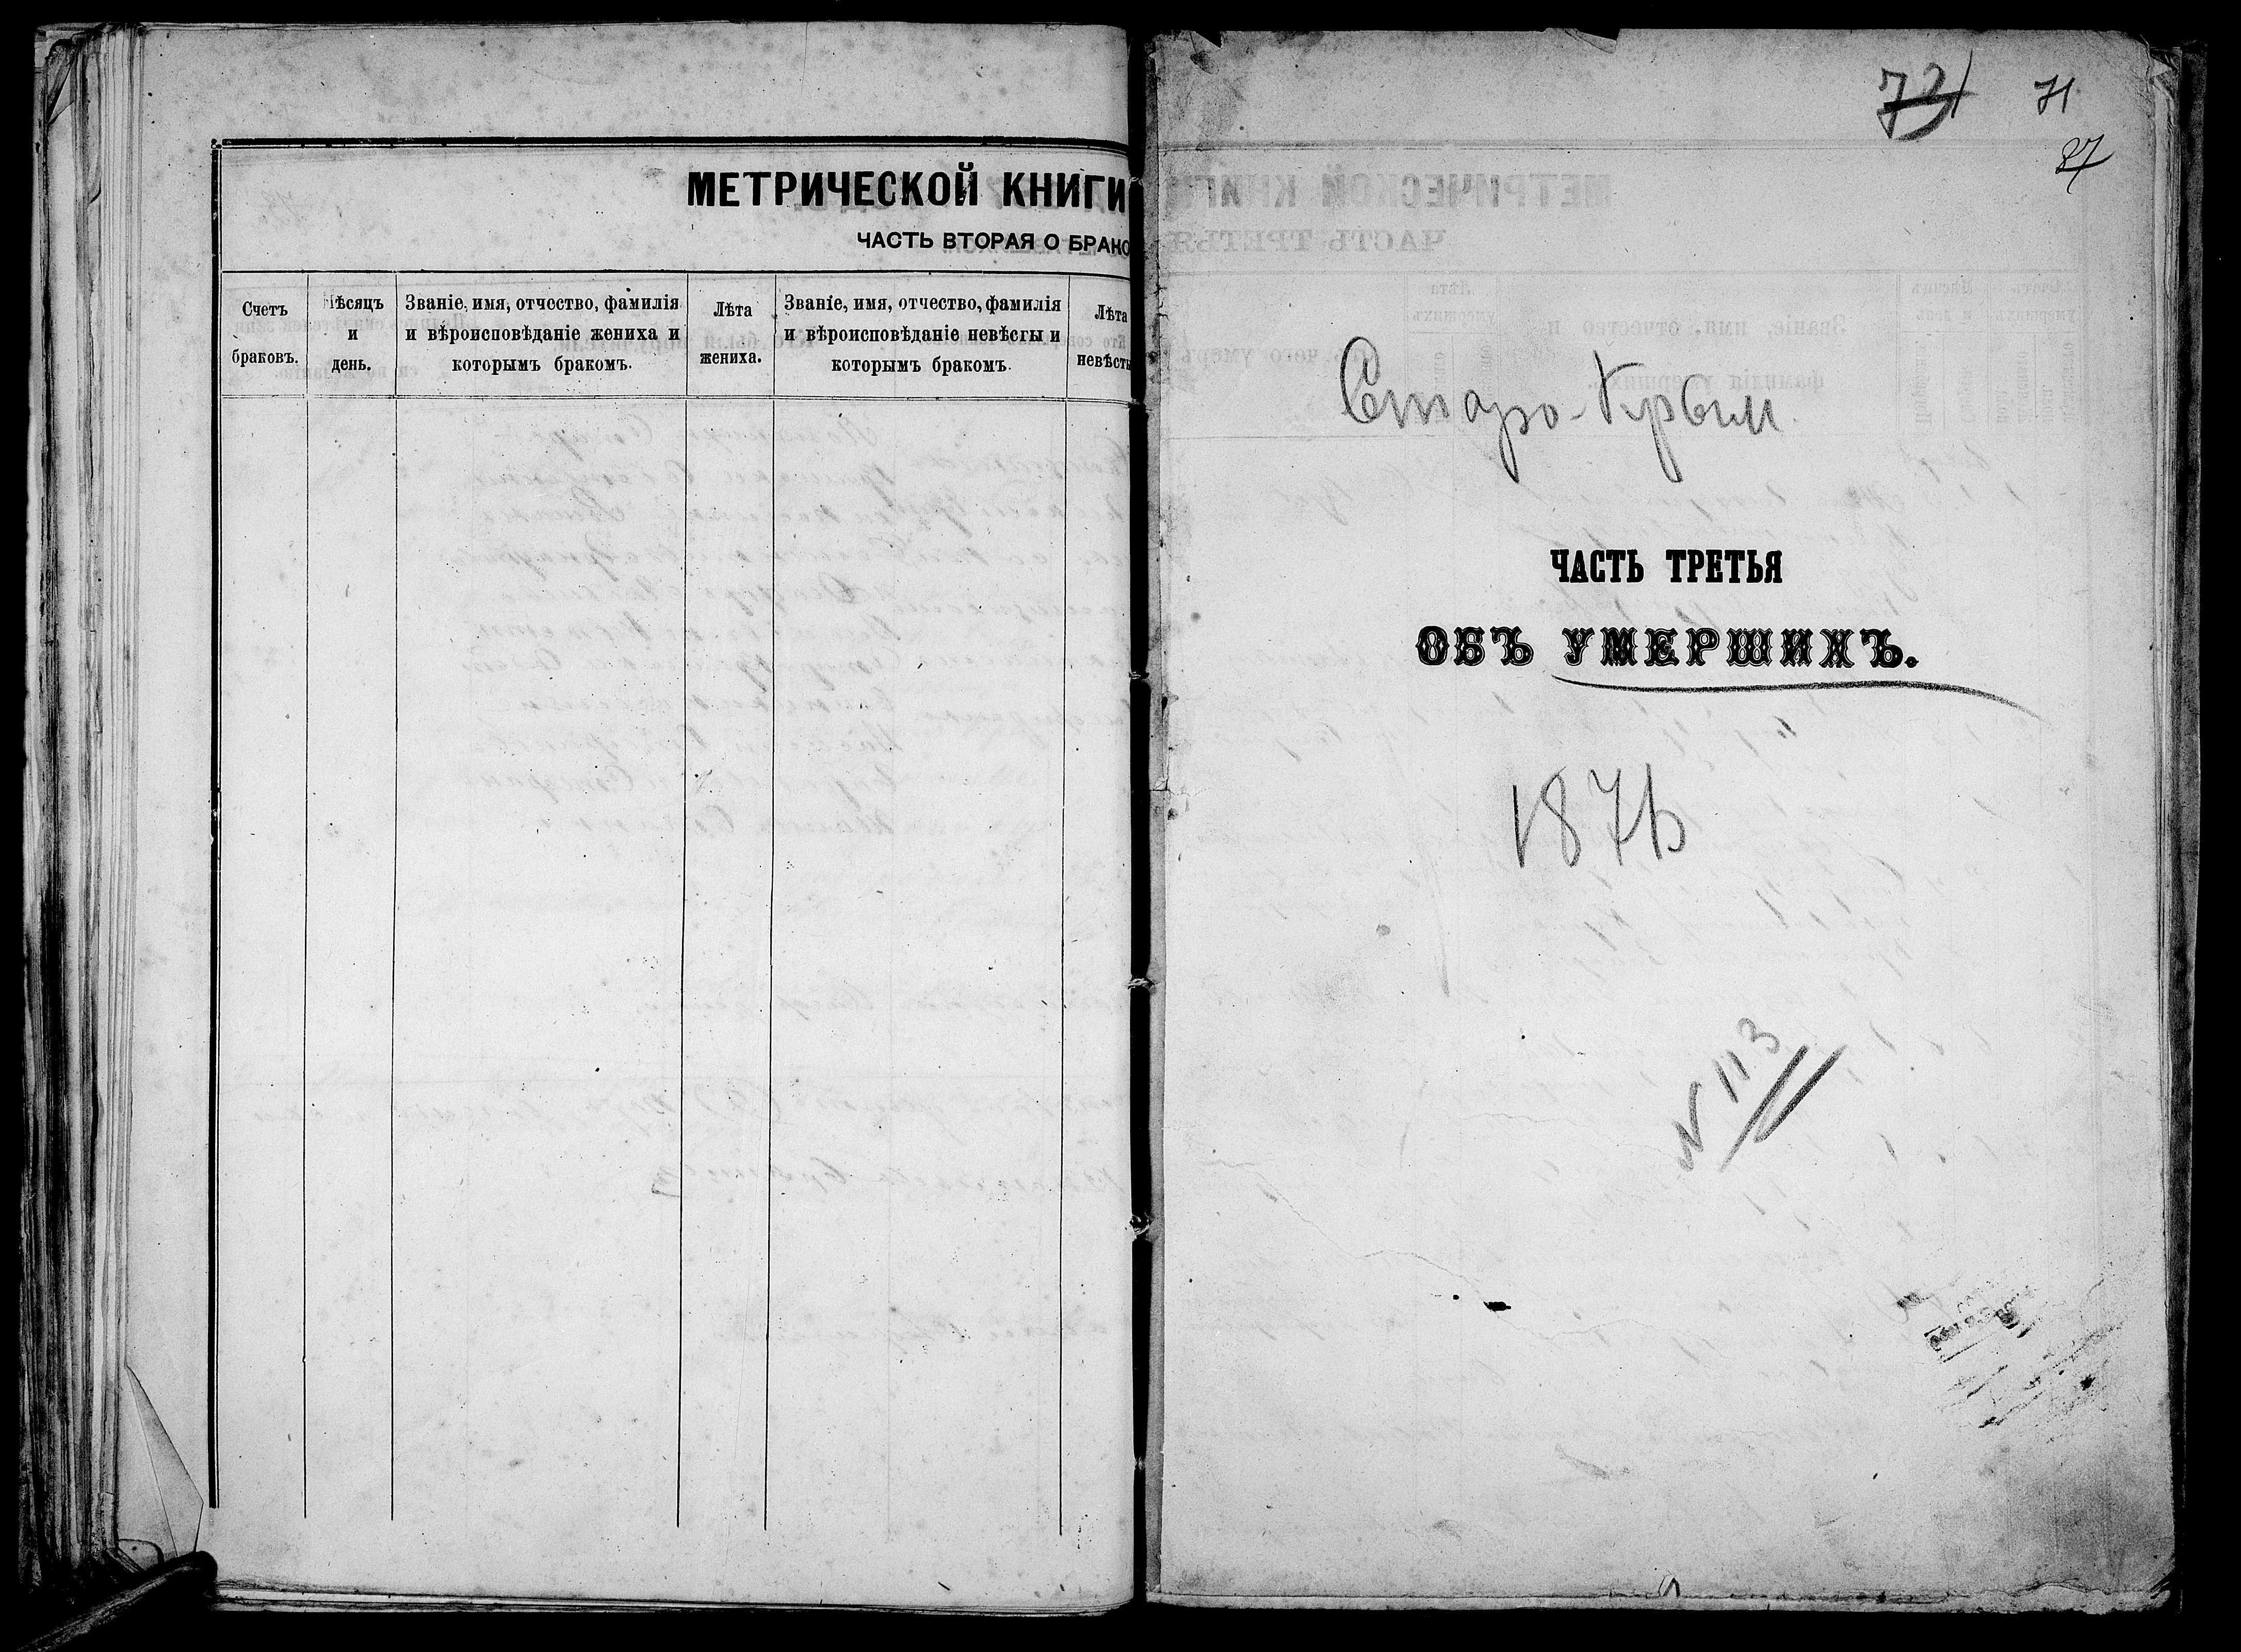 МЕТРИЧЕСКОЙ КНИГИ
ЧАСТЬ ВТОРАЯ О БРАКО
Счетъ браковъ.
Мѣсяцъ и день.
Званіе, имя, отчество, фамилія и вѣроисповѣданіе жениха и которымъ бракомъ.
Лѣта жениха.
Званіе, имя, отчество, фамилія и вѣроисповѣданіе невѣсты и которымъ бракомъ.
Лѣта невѣсты
71
27
Старо-Крым.
ЧАСТЬ ТРЕТЬЯ
ОБЪ УМЕРШИХЪ.
1876
N 113